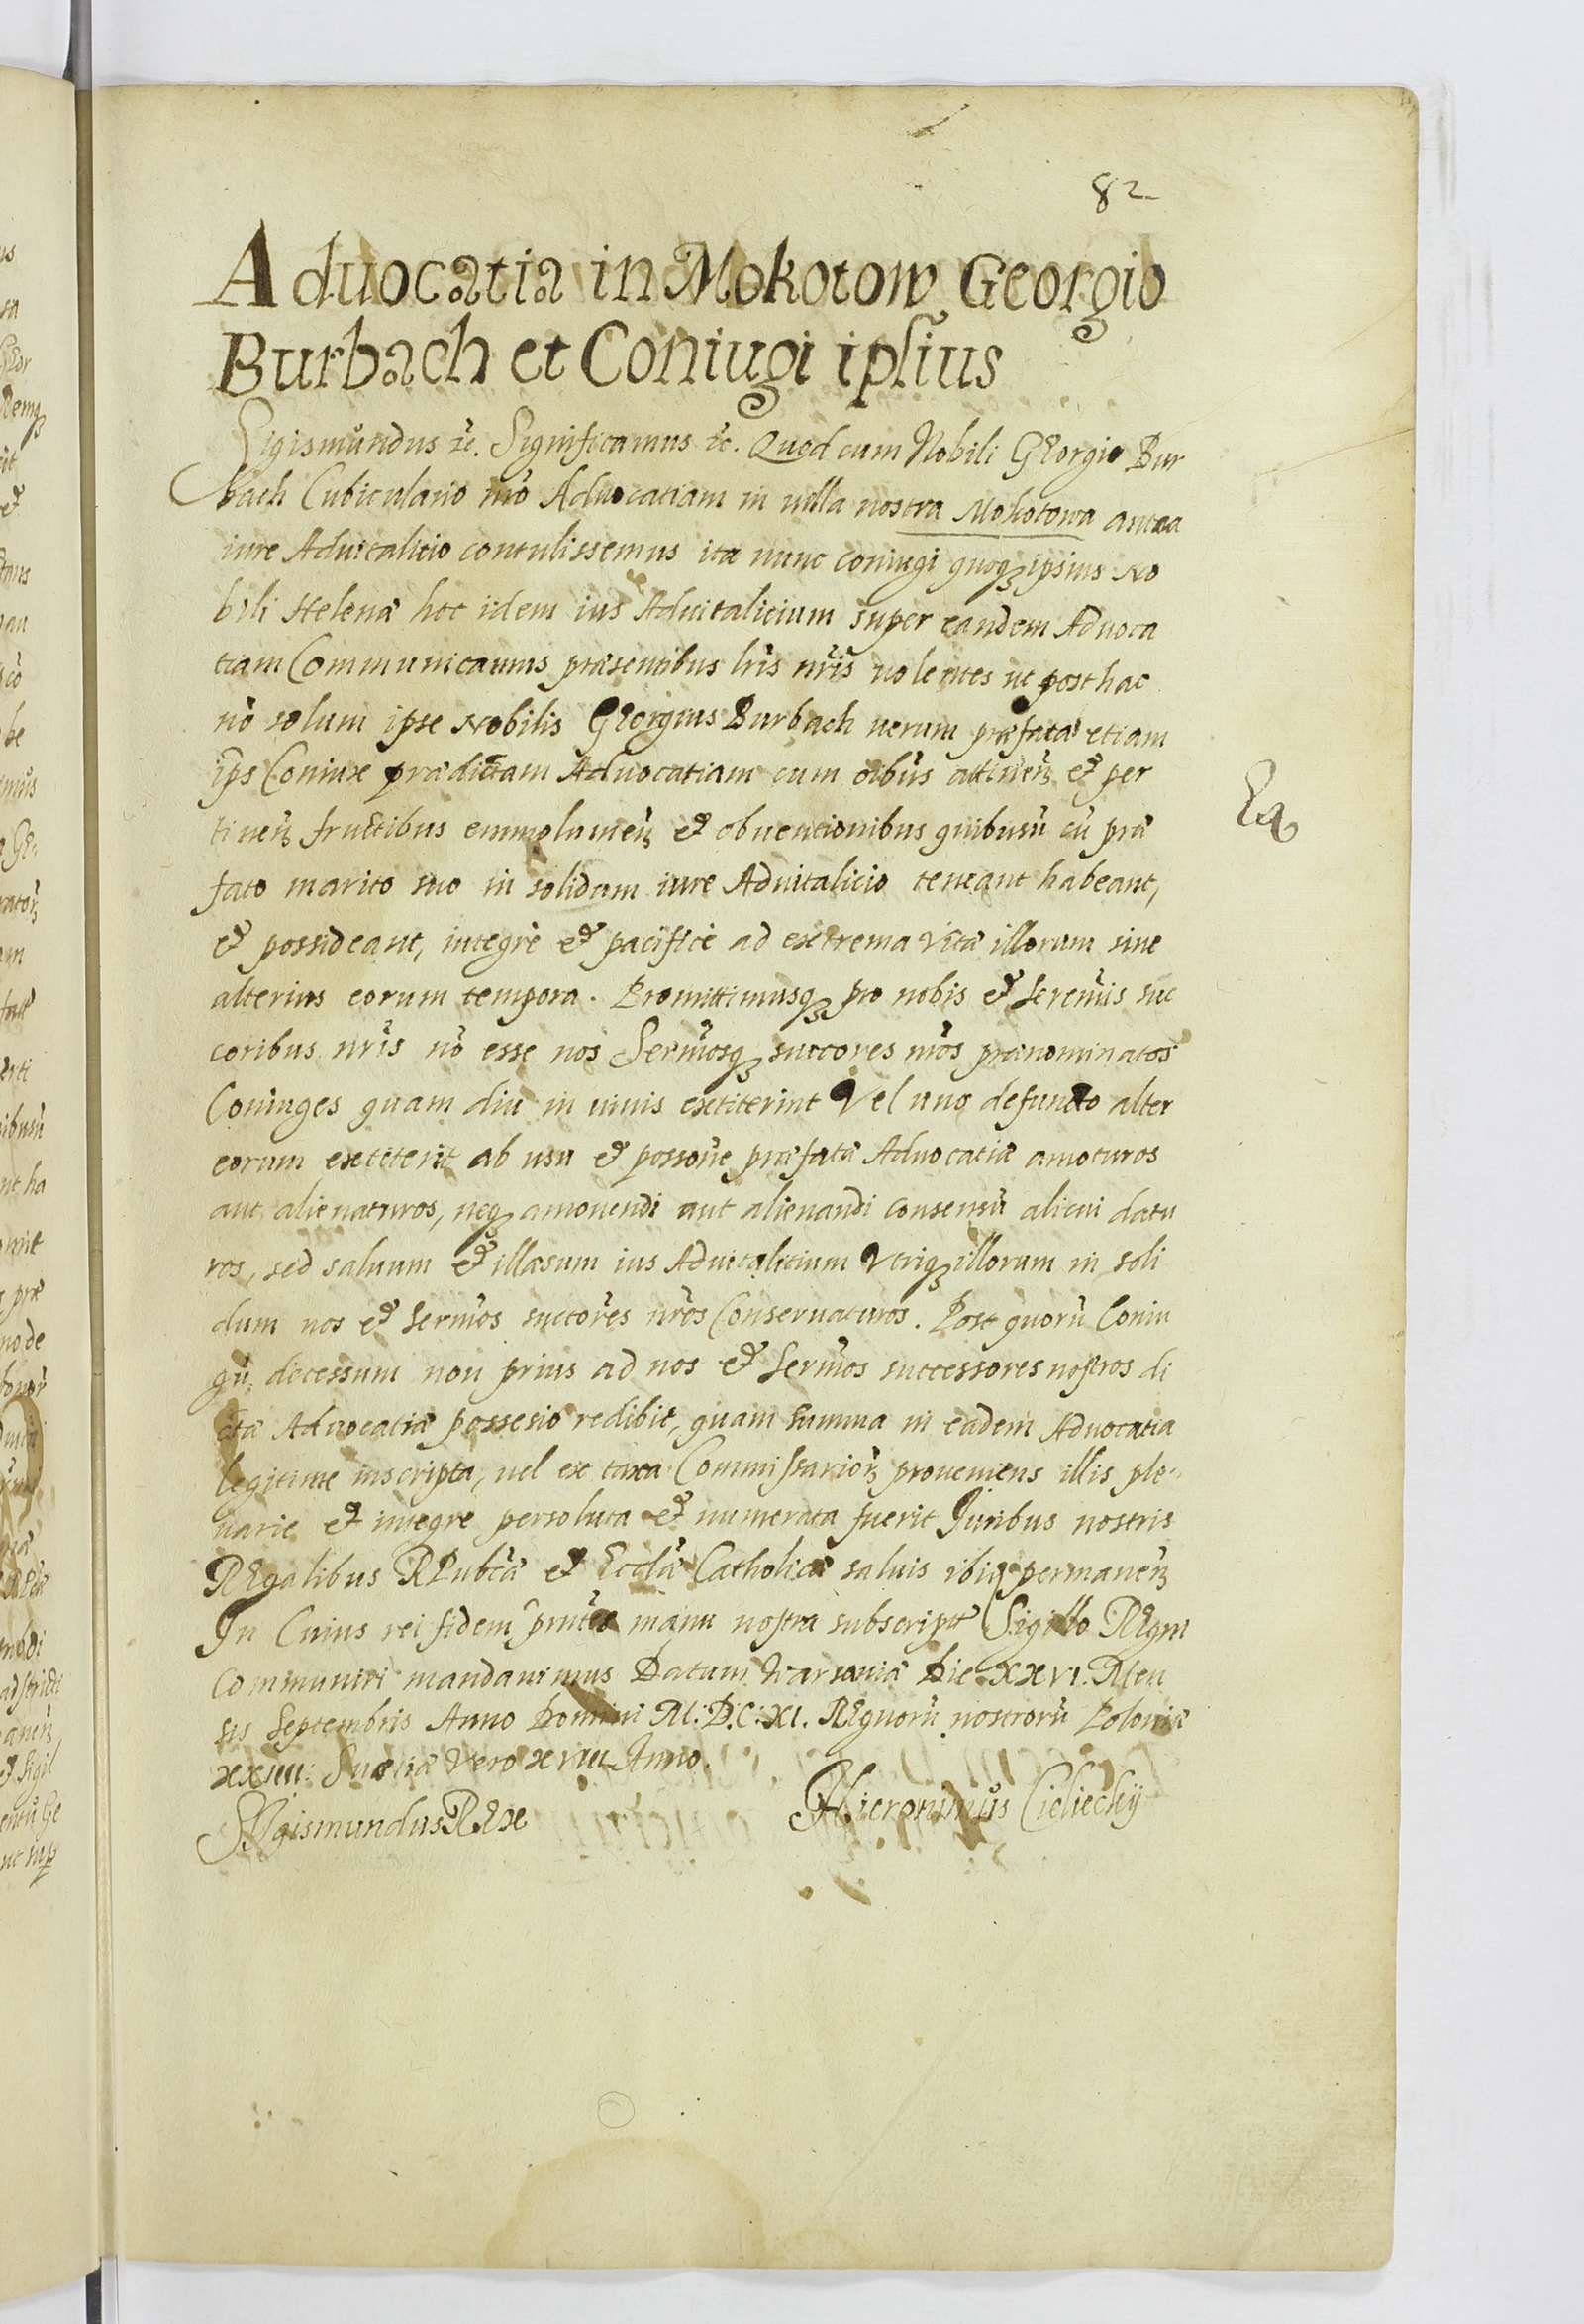 82
Aduocatia in Mokotow Georgio
Burbach et Coniugi ipsius
Sigismundus &c. Significamus &c. Quod cum Nobili Georgio Bur
bach Cubiculario nrõ Aduocatiam in uilla nostra Mokotowa antea
iure Aduitalitio contulissemus ita nunc coniugi quoqꝫ ipsius No
bili Helenæ hoc idem ius Aduitalicium super eandem Aduoca
tiam Communicamus præsentibus lrĩs nrĩs uolentes ut posthac
nõ solum ipse Nobilis Georgius Burbach uerum præfata etiam
ips Coniux prædictam Aduocatiam cum oĩbus attineñ et per
tineñ fructibus emmolumeñ et obuencionibus quibusũ cũ præ
fato marito suo in solidum iure Aduitalicio teneant habeant,
et possideant, integrè et pacificè ad extrema vitæ illorum siue
alterius eorum tempora. Promittimusqꝫ pro nobis et Sereñis suc
coribus nrĩs nõ esse nos Serm̃osqꝫ succores nrõs prænominatos
Coniuges quam diu in uiuis extiterint Vel uno defuncto alter
eorum extiterit ab usu et possoñe præfatæ Aduocatiæ amoturos
aut alienaturos, neqꝫ amouendi aut alienandi consensũ alicui datu
ros, sed saluum et illæsum ius Aduitalitium Vtriqꝫ illorum in soli
dum nos et Serm̃os suctores nrõs Conseruaturos. Post quorũ Coniu
gũ decessum non prius ad nos et Serm̃os successores nostros di
ctæ Aduocatiæ possesio redibit, quam summa in eadem Aduocatia
legitime inscripta, uel ex taxa Commissarior̃ proueniens illis ple
narie et integre persoluta et numerata fuerit Juribus nostris
REgalibus RPub̃cæ et Eccl̃æ Catholicæ saluis ibiqꝫ permaneñ
In Cuius rei fidem prñtes manu nostra subscript Sigillo REgni
communiri mandauimus Datum Warsauiæ Die XXVI. Men
sis Septembris Anno Domini M: D: C: XI. REgnorũ nostrorũ Poloniæ
xxiiii: Sueciæ Vero xviii Anno.
SIgismundus REx Hieronimus Cieliecky